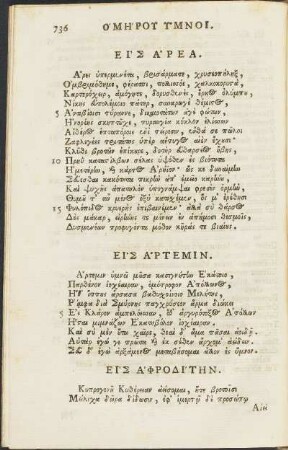 736 ΟΜΗΡΟΥ ΥΜΝΟΙ.
ΕΙΣ ΑΡΕΑ.
Ἆρες ὑπερμενέτα, βρισάρματε, χρυσεοπήληξ,
Ὀμβριμόθυμε, φέρασπι, πολισσόε, χαλκοκορυστὰ,
Καρτερόχειρ, ἀμόγητε, δορυσθενὲς, ἕρκος ὀλύμπου,
Νίκης πάτερ, συναρωγὲ θέμιστος,
5 Ἀντιβίοισι τύραννε, δικαιοτάτων ἀγὲ φωτῶν,
Ἠνορέης σκηπτοῦχε, πυραυγέα κύκλον ἑλίσσων
Αἰθέρος ἑπταπόροις ἐνὶ τείρεσιν, ἔνθά σε πῶλοι
Ζαφλεγέες τριτάτης ὑπὲρ ἄντυγος αἰὲν ἔχουσι·
Κλῦθι βροτῶν ἐπίκουρε, δοτὴρ εὐθαρσέος ἥβης,
10 Πρηῢ καταστίλβων σέλας ὑψόθεν ἐς βιότητα
Ἡμετέρην, καὶ κάρτος Ἀρήϊον· ὥς κε δυναίμην
Σεύασθαι κακότητα πικρὴν ἀπ' ἐμοῖο καρήνου,
Καὶ ψυχῆς ἀπατηλὸν ὑπογνάμψαι φρεσὶν ὁρμὴν,
Θυμοῦ τ' αὖ μένος ὀξὺ κατισχέμεν, ὅς μ' ἐρέθησι
15 Φυλόπιδος κρυερῆς ἐπιβαινέμεν· ἀλλὰ σὺ θάρσος
Δὸς μάκαρ, εἰρήνης τε μένειν ἐν ἀπήμοσι θεσμοῖς,
Δυσμενέων προφυγόντα μόθον κῆράς τε βιαίους.
ΕΙΣ ΑΡΤΕΜΙΝ.
Ἄρτεμιν ὕμνει μοῦσα κασιγνήτην Ἑκάτοιο,
Παρθένον ἰοχέαιραν, ὁμότροφον Ἀπόλλωνος,
Ἥ θ' ἵππους ἄρσασα βαθυσχοίνοιο Μέλητος,
Ῥίμφα διὰ Σμύρνης παγχρύσεον ἅρμα διώκει
5 Ἐς Κλάρον ἀμπελόεσσαν, ὅθ' ἀργυρότοξος Ἀπόλλων
Ἧσται μιμνάζων ἑκατηβόλον ἰοχέαιραν.
Καὶ σὺ μὲν οὕτω χαῖρε, θεαί θ' ἅμα πᾶσαι ἀοιδῇ.
Αὐτὰρ ἐγώ σε πρῶτα καὶ ἐκ σέθεν ἄρχομ' ἀείδειν.
Σεῦ δ' ἐγὼ ἀρξάμενος μεταβήσομαι ἄλλον ἐς ὕμνον.
ΕΙΣ ΑΦΡΟΔΙΤΗΝ.
Κυπρογενῆ Κυθέρειαν ἀείσομαι, ἥτε βροτοῖσι
Μείλιχα δῶρα δίδωσιν, ἐφ' ἱμερτῷ δὲ προσώπῳ
Αἰεὶ